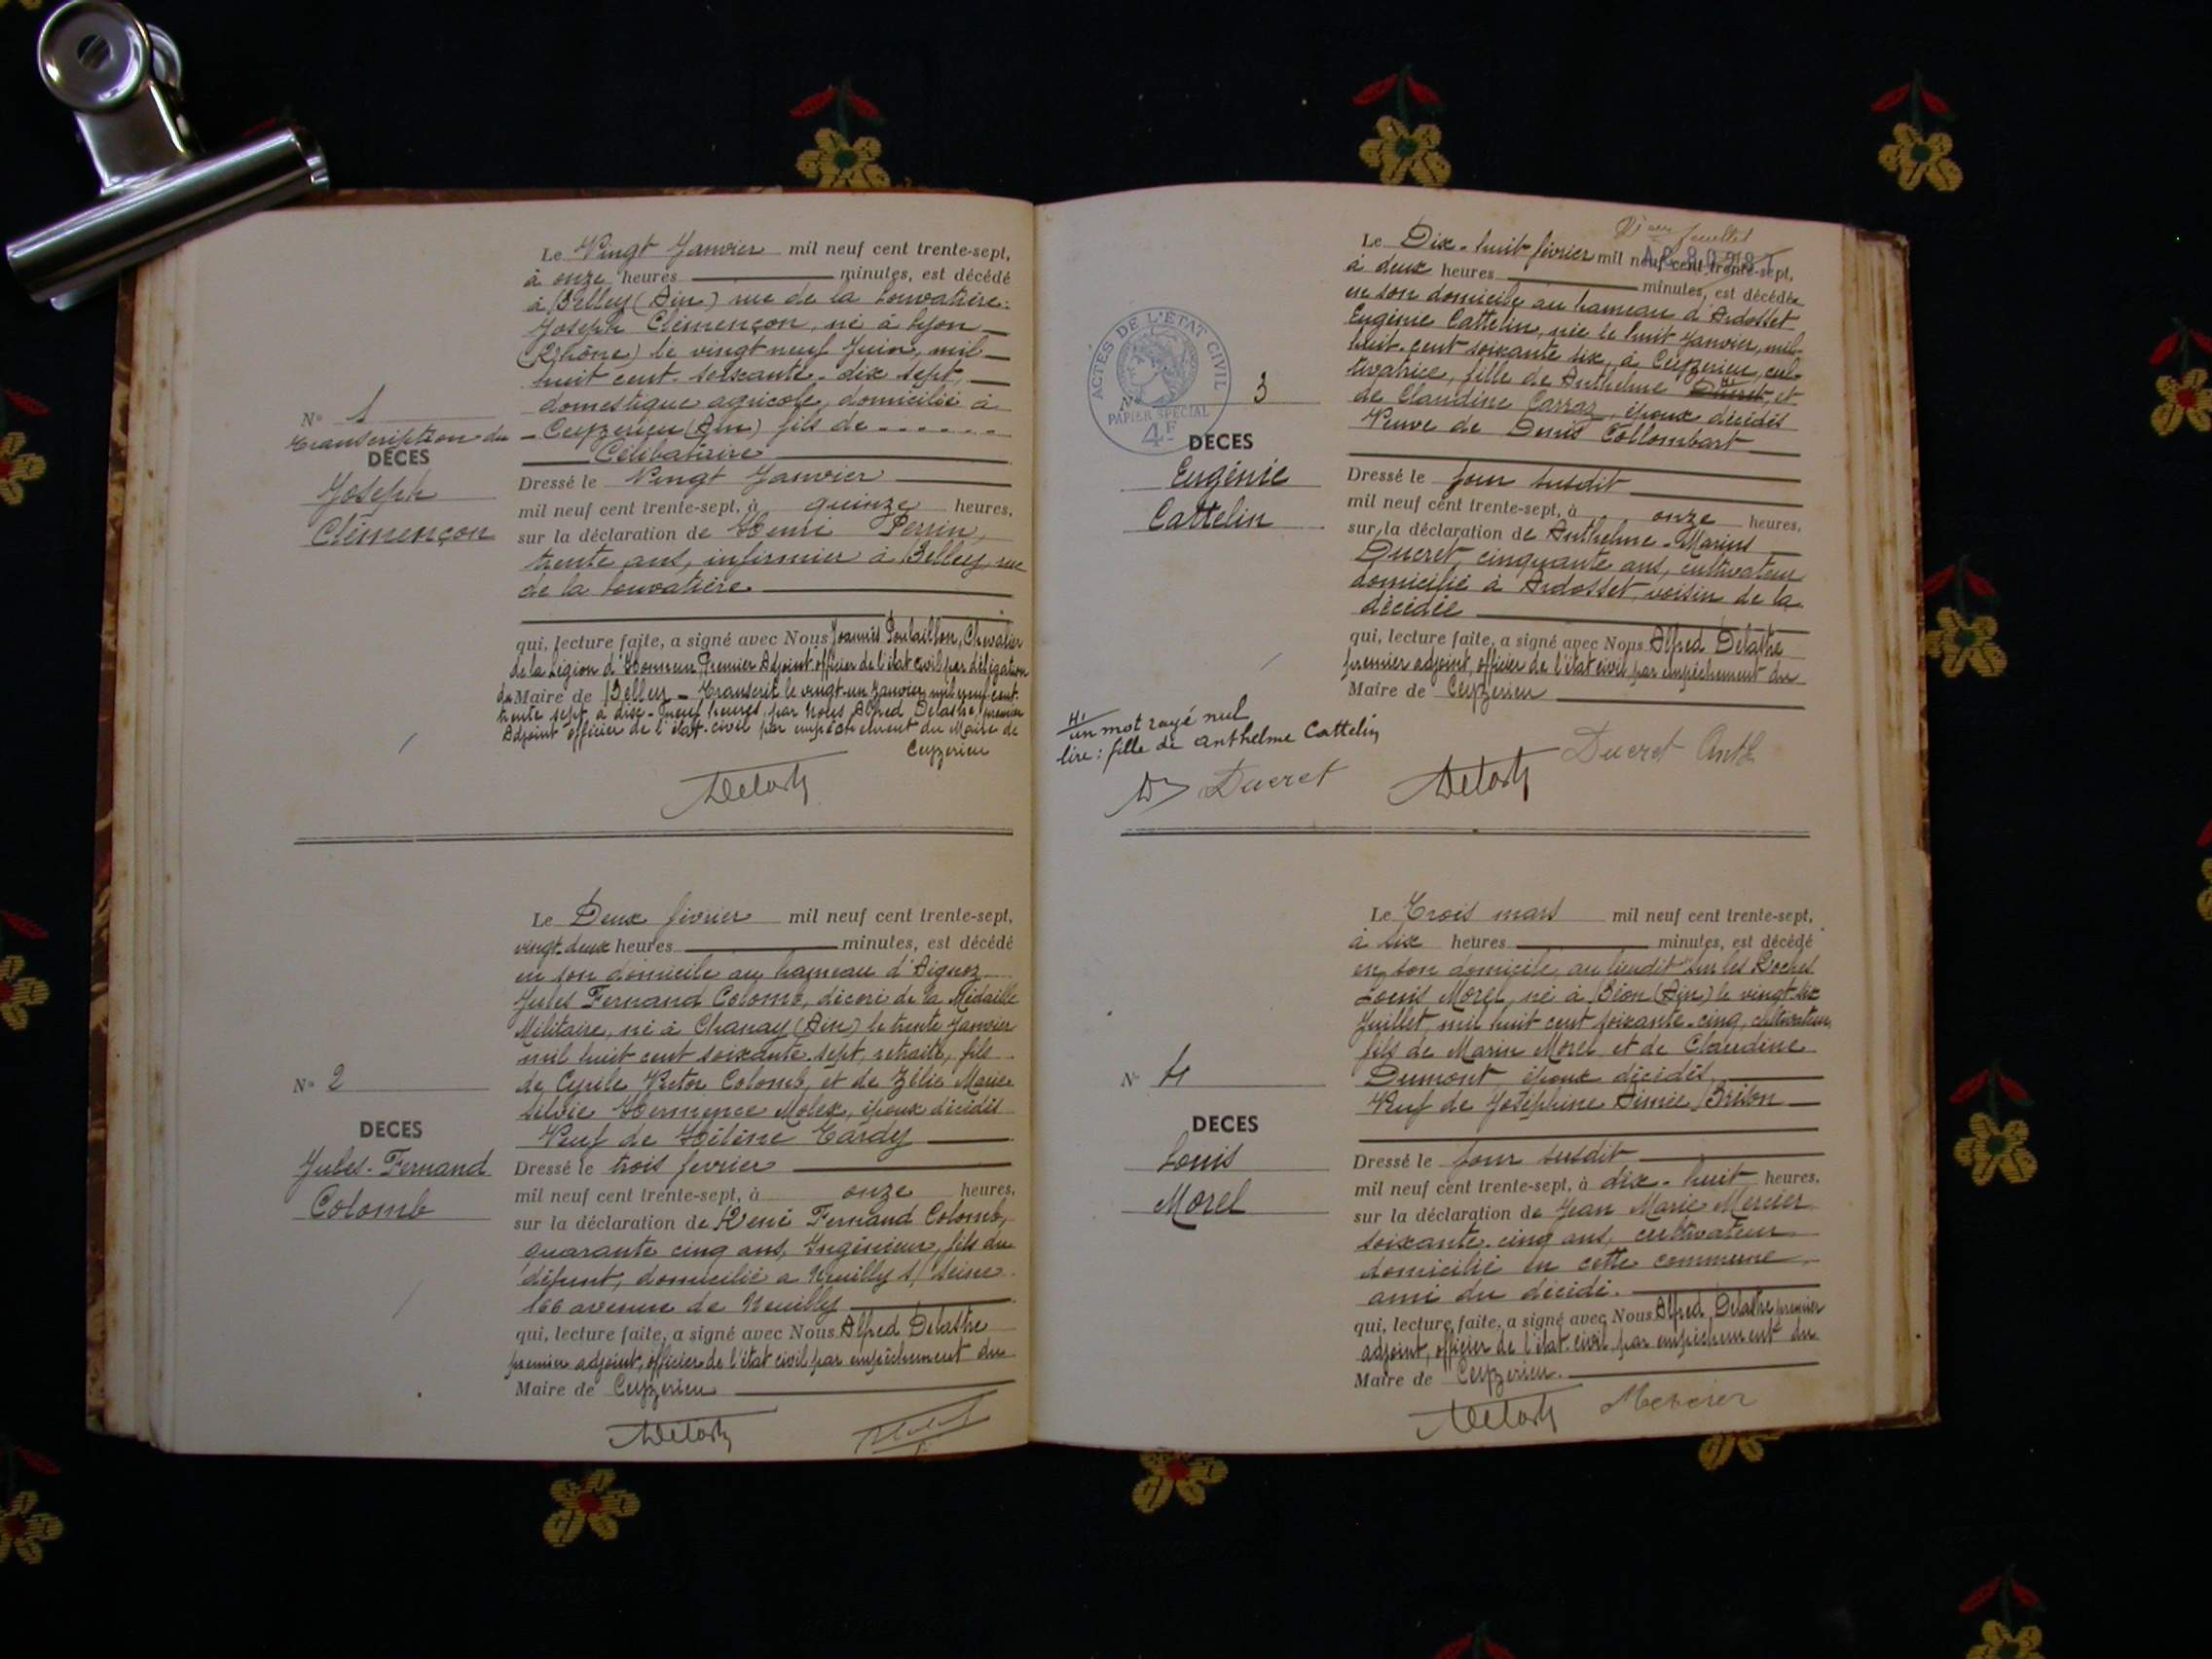 Le Vingt Janvier mil neuf cent trente-sept,
à onze heures minutes, est décédé
à Belley (Ain) rue de la Louvatière:
Joseph Clémençon, né à Lyon
(Rhône) le vingt neuf Juin, mil
huit cent soixante-dix sept,
domestique agricole, domicilié à
Ceyzerieu (Ain) fils de .......
Célibataire
N° 1
transcription du
DÉCES
Joseph
Clémençon
Dressé le Vingt Janvier
mil neuf cent trente-sept, à quinze heures,
sur la déclaration de Henri Perrin,
trente ans, infirmier à Belley, rue
de la Louvatière.
qui, lecture faite, a signé avec Nous Joannès Poulaillon, Chevalier
de la Légion d'Honneur, Premier Adjoint officier de l'état civil par délégation
du Maire de Belley - Transcrit le vingt-un Janvier mil neuf cent
trente sept à dix-neuf heures, par Nous Alfred Delastre, premier
Adjoint officier de l'état-civil par empêchement du Maire de
Ceyzerieu
Le Deux février mil neuf cent trente-sept,
vingt-deux heures minutes, est décédé
en son domicile au hameau d'Aignoz
Jules Fernand Colomb, décoré de la Médaille
Militaire, né à Chanay (Ain) le trente Janvier
mil huit cent soixante-sept, retraité, fils
de Cyrile Victor Colomb, et de Zélie Marie
Silvie Hermence Molex, époux décédés
Veuf de Hélène Tardy
N° 2
DECES
Jules-Fernand
Colomb
Dressé le trois fevrier
mil neuf cent trente-sept, à onze heures,
sur la déclaration de René Fernand Colomb,
quarante cinq ans, Ingénieur, fils du
défunt, domicilié a Neuilly s/ Seine
166 avenue de Neuilly
qui, lecture faite, a signé avec Nous Alfred Delastre
premier adjoint, officier de l'état civil par empêchement du
Maire de Ceyzerieu
2ème feuillet
Le Dix-huit février mil neuf cent trente-sept,
à deux heures minutes, est décédée
en son domicile au hameau d'Ardosset
Eugénie Cattelin, née le huit Janvier, mil
huit-cent soixante six, à Ceyzerieu, cul-
tivatrice, fille de Anthelme Ducret, et
de Claudine Carraz, époux décédés
Veuve de Denis Collombart
ACTES DE L'ÉTAT CIVIL
PAPIER SPÉCIAL
4F
N° 3
DECES
Eugénie
Cattelin
Dressé le jour susdit
mil neuf cent trente-sept, à onze heures,
sur la déclaration de Anthelme-Marius
Ducret, cinquante ans, cultivateur
domicilié à Ardosset, voisin de la
décédée
qui, lecture faite, a signé avec Nous Alfred Delastre
premier adjoint, officier de l'état civil par empêchement du
Maire de Ceyzerieu
un mot rayé nul
lire: fille de Anthelme Cattelin
Ducret
Ducret Anth
Le Trois mars mil neuf cent trente-sept,
à six heures minutes, est décédé
en son domicile, au lieudit "Sur les Roches
Louis Morel, né à Béon (Ain) le vingt-six
Juillet, mil huit cent soixante-cinq, cultivateur
fils de Marin Morel et de Claudine
Dumont, époux décédés,
Veuf de Joséphine Aimée Brison
N° 4
DECES
Louis
Morel
Dressé le jour susdit
mil neuf cent trente-sept, à dix-huit heures,
sur la déclaration de Jean Marie Mercier
soixante-cinq ans, cultivateur
domicilié en cette commune,
ami du décédé.
qui, lecture faite, a signé avec Nous Alfred Delastre premier
adjoint, officier de l'état-civil par empêchement du
Maire de Ceyzerieu.
Mercier